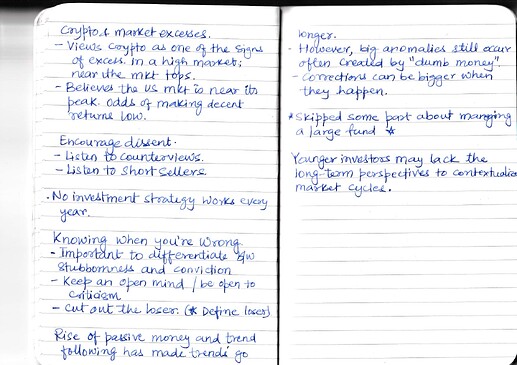 Crypto & market excesses.
- Views Crypto as one of the signs
of excess. In a high market;
near the mkt tops.
- Believes the US mkt is near its
peak. Odds of making decent
returns low.
Encourage dissent.
- Listen to counterviews.
- Listen to Short Sellers
. No investment strategy works every
year.
Knowing when you're Wrong
- Important to differentiate b/w
Stubbornness and conviction
- Keep an open mind / be open to
criticism
- Cut out the loser. (* Define loser)
Rise of passive money and trend
following has made trends go
longer.
- However, big anomalies still occur
often created by "dumb money".
- Corrections can be bigger when
they happen.
* Skipped some part about managing
a large fund *
Younger investors may lack the
long-term perspectives to contextualize
market cycles.